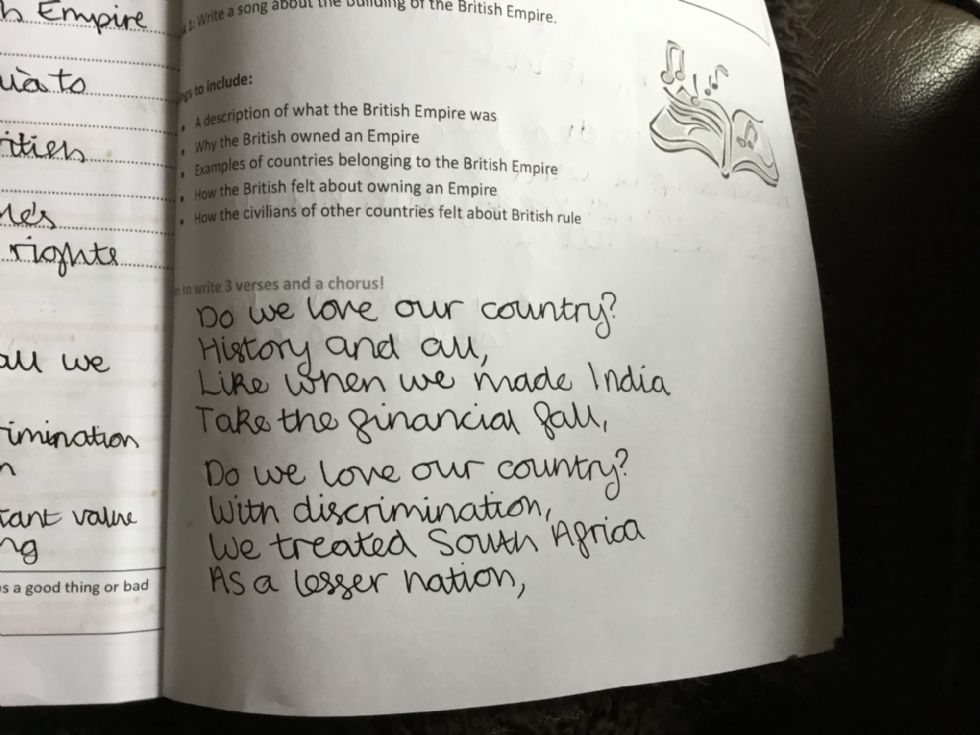 h Empire
ua to
ities
he's
rights
all we
imination
n
tant value
ng
s a good thing or bad
1: Write a song about the building of the British Empire.
ngs to include:
• A description of what the British Empire was
• Why the British owned an Empire
• Examples of countries belonging to the British Empire
• How the British felt about owning an Empire
• How the civilians of other countries felt about British rule
to write 3 verses and a chorus!
Do we love our country?
History and all,
Like when we made India
Take the financial fall,
Do we love our country?
With discrimination,
We treated South Africa
As a lesser nation,